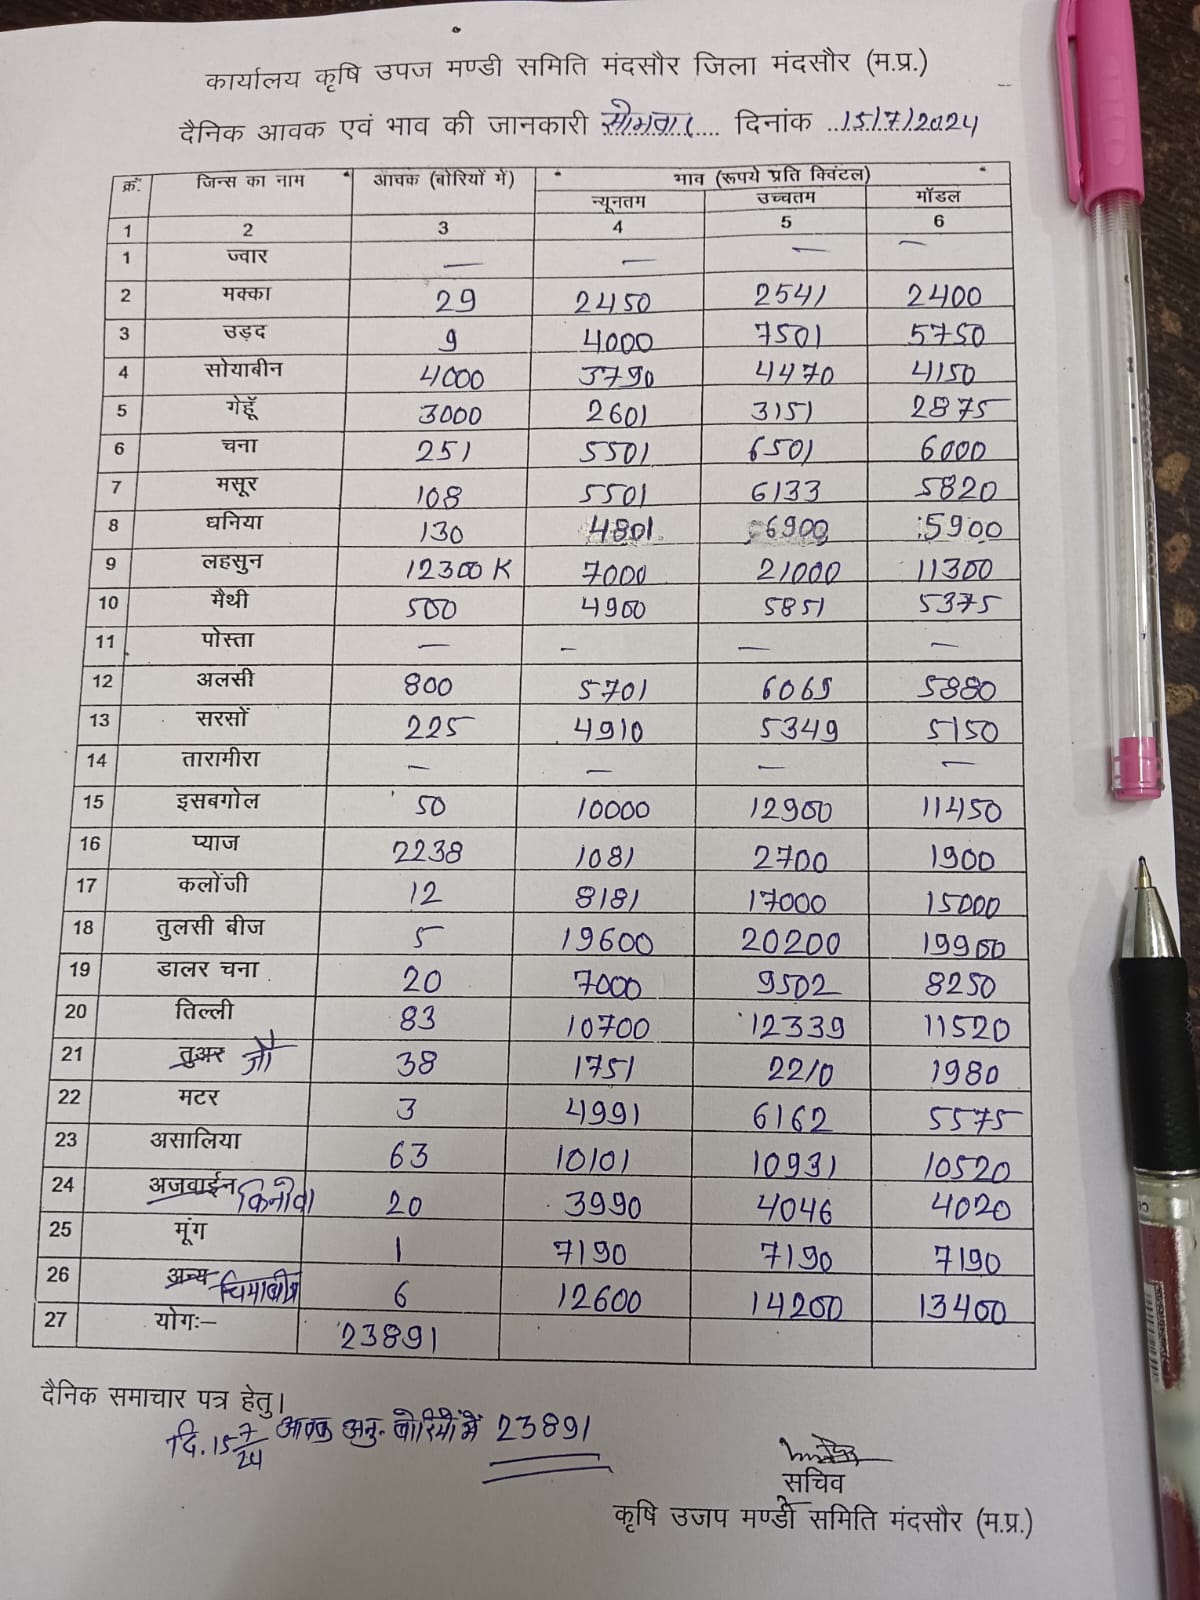 कार्यालय कृषि उपज मण्डी समिति मंदसौर जिला मंदसौर (म.प्र.)
दैनिक आवक एवं भाव की जानकारी सोमवार दिनांक 15/7/2024
क्रं. जिन्स का नाम आवक (बोरियों में) भाव (रूपये प्रति क्विंटल)
न्यूनतम उच्चतम मॉडल
1 2 3 4 5 6
1 ज्वार — — — —
2 मक्का 29 2450 2541 2400
3 उड़द 9 4000 7501 5750
4 सोयाबीन 4000 3790 4470 4150
5 गेहूँ 3000 2601 3151 2875
6 चना 251 5501 6501 6000
7 मसूर 108 5501 6133 5820
8 धनिया 130 4801 6900 5900
9 लहसुन 12300 K 7000 21000 11300
10 मैथी 500 4900 5851 5375
11 पोस्ता — — — —
12 अलसी 800 5701 6065 5880
13 सरसों 225 4910 5349 5150
14 तारामीरा — — — —
15 इसबगोल 50 10000 12900 11450
16 प्याज 2238 1081 2700 1900
17 कलोंजी 12 8181 17000 15000
18 तुलसी बीज 5 19600 20200 19900
19 डालर चना 20 7000 9502 8250
20 तिल्ली 83 10700 12339 11520
21 तुअर जौ 38 1751 2210 1980
22 मटर 3 4991 6162 5575
23 असालिया 63 10101 10931 10520
24 अजवाईन किनोवा 20 3990 4046 4020
25 मूंग 1 7190 7190 7190
26 अन्य चियाबीज 6 12600 14200 13400
27 योगः– 23891
दैनिक समाचार पत्र हेतु।
दि. 15 7/24 आवक अनु. बोरियों में 23891
सचिव
कृषि उजप मण्डी समिति मंदसौर (म.प्र.)